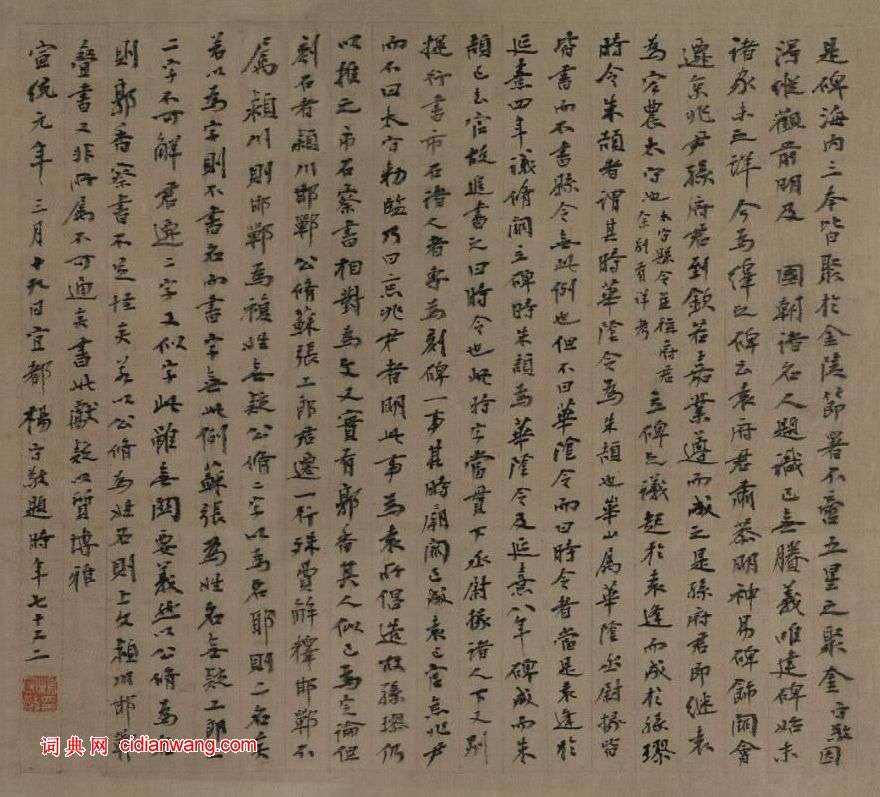 是碑海内三本皆聚於金陵節署不啻五星之聚奎守敬因
得縱觀前明及國朝諸名人題識已無賸義唯建碑始末
諸家未之詳今為繹之碑云袁府君肅恭明神易碑飾闕會
遷京兆尹孫府君到欽若嘉業遵而成之是孫府君即繼袁
為宏農太守也太守縣令並稱府君余別有詳考立碑之議起於袁逢而成於孫璆
時令朱頡者謂其時華陰令為朱頡也華山屬華陰丞尉掾皆
皆書而不書縣令無此例也但不曰華陰令而曰時令者當是袁逢於
延熹四年議脩闕立碑時朱頡為華陰令及延熹八年碑成而朱
頡已去官故追書之曰時令也此時字當貫下丞尉掾諸人下又別
提行書市石諸人者專為刻碑一事其時廟闕已成袁已官京兆尹
而不曰太守勅監乃曰京兆尹者明此事為袁所倡造故孫璆仍
以推之市石察書相對為文又實有郭香其人似已為定論但
刻石者潁川邯鄲公脩蘇張工郭君遷一行殊費解釋邯鄲不
屬潁川則邯鄲為複姓無疑公脩二字以為名耶則二名矣
若以為字則不書名而書字無此例蘇張為姓名無疑工郭
二字不可解君遷二字又似字此雖無關要義然以公脩為名
則郭香察書不足怪矣若以公脩為姓名則上文潁川邯鄲
疊書又非所屬不可通矣書此獻疑以質博雅
宣統元年三月十九日宜都楊守敬題時年七十三
词典网 cidianwang.com